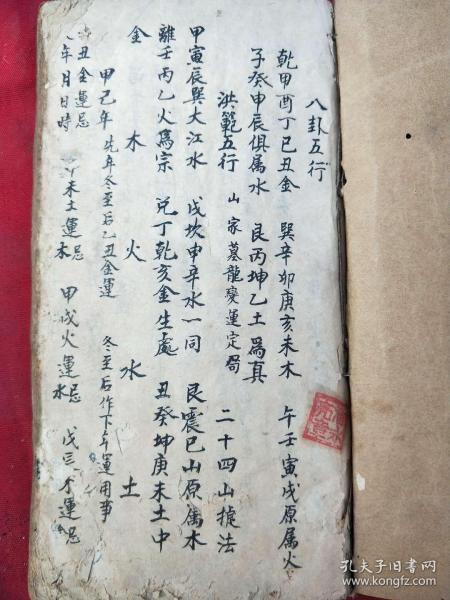 八卦五行
乾甲酉丁巳丑金 巽辛卯庚亥未木 午壬寅戌原属火
子癸申辰俱属水 艮丙坤乙土為真
洪範五行 山家墓龍變運定局 二十四山掟法
甲寅辰巽大江水 戌坎申辛水一同 艮震巳山原属木
離壬丙乙火為宗 兑丁乾亥金生處 丑癸坤庚未土中
金 木 火 水 土
甲己年 先年冬至后乙丑金運 冬至后作下年運用事
丑金運忌 年月日時 未土運忌木 甲戌火運忌水 戊 木運忌
孔夫子旧书网